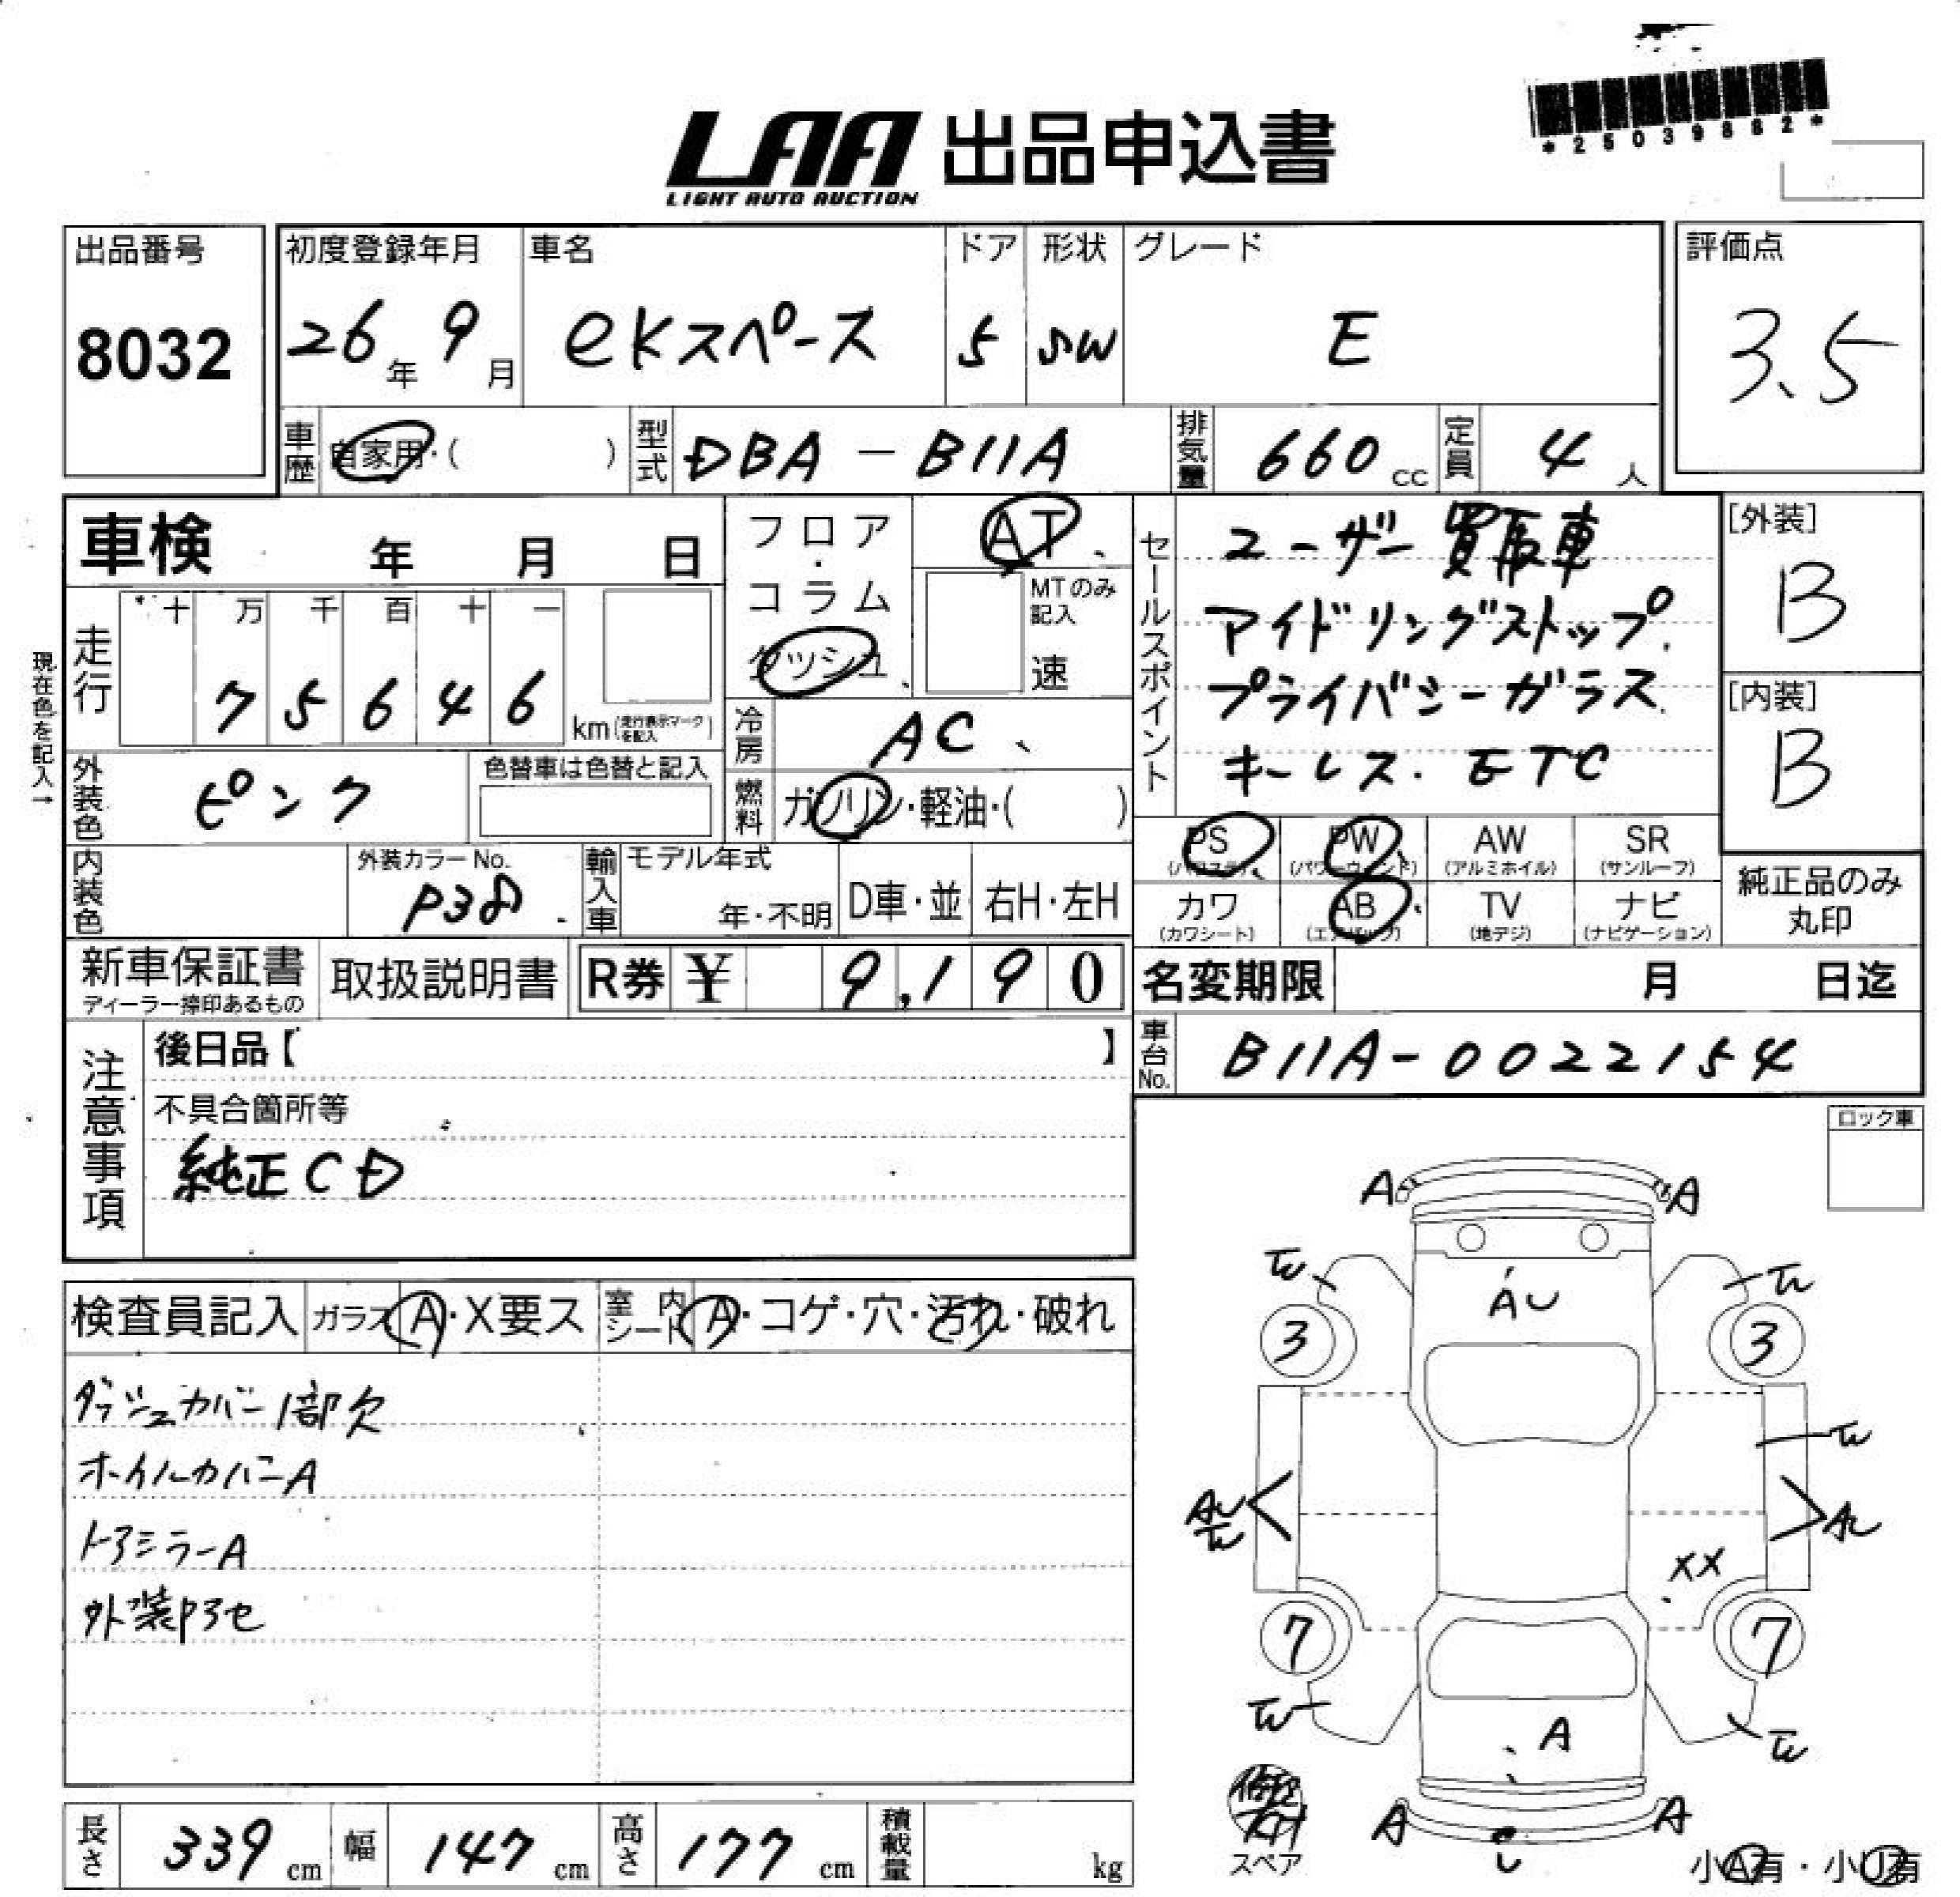 *25039882*
LAA 出品申込書
LIGHT AUTO AUCTION
出品番号
8032
初度登録年月
26年 9月
車名
eKスペース
ドア
5
形状
SW
グレード
E
評価点
3.5
車歴 自家用・( )
型式 DBA-B11A
排気量 660 cc
定員 4 人
車検 年 月 日
フロア・コラム
ダッシュ
AT
MTのみ記入
速
現在色を記入→
走行
十 万 千 百 十 一
7 5 6 4 6
km(走行表示マークを記入)
冷房 AC
燃料 ガソリン・軽油・( )
外装色 ピンク
色替車は色替と記入
内装色
外装カラーNo.
P38
輸入車
モデル年式
年・不明
D車・並
右H・左H
セールスポイント
ユーザー買取車
アイドリングストップ.
プライバシーガラス.
キーレス. ETC
[外装]
B
[内装]
B
PS (パワステ)
PW (パワーウィンド)
AW (アルミホイル)
SR (サンルーフ)
カワ (カワシート)
AB (エアバック)
TV (地デジ)
ナビ (ナビゲーション)
純正品のみ丸印
新車保証書
ディーラー捺印あるもの
取扱説明書
R券 ¥ 9,190
名変期限 月 日迄
注意事項
後日品【 】
不具合箇所等
純正CD
車台No. B11A-0022154
ロック車
検査員記入
ガラス A・X要ス
室内シート A・コゲ・穴・汚れ・破れ
ダッシュカバー1部欠
ホイルカバーA
ドアミラーA
A A
AU
3 3
XX
7 7
A
A A
U
スペア
小A有・小U有
長さ 339 cm
幅 147 cm
高さ 177 cm
積載量 kg